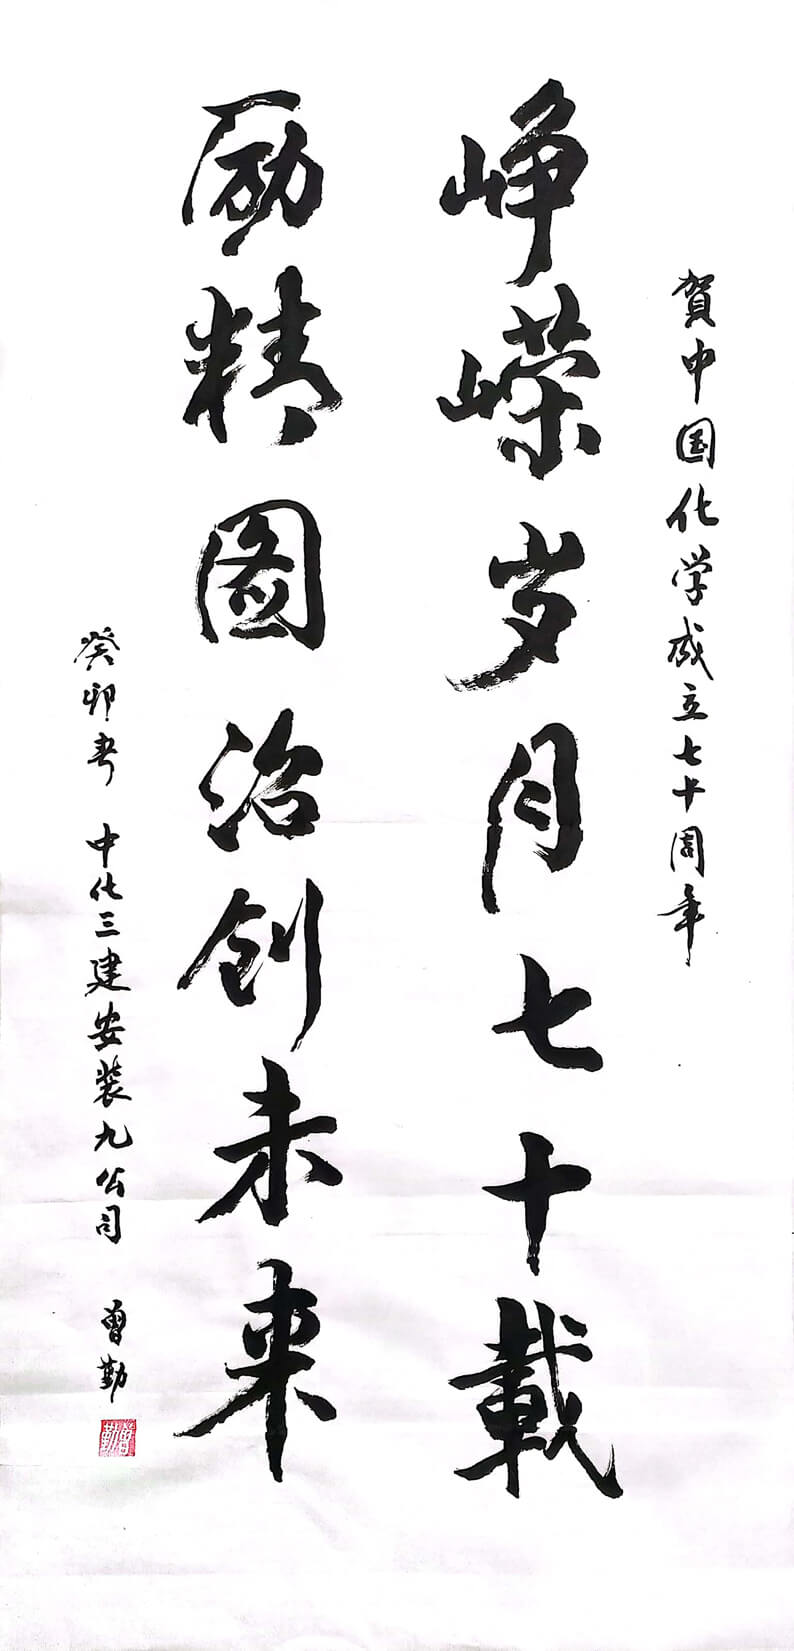 賀中国化学成立七十周年
峥嵘岁月七十載
励精图治创未来
癸卯春 中化三建安装九公司 曾勤
曾勤